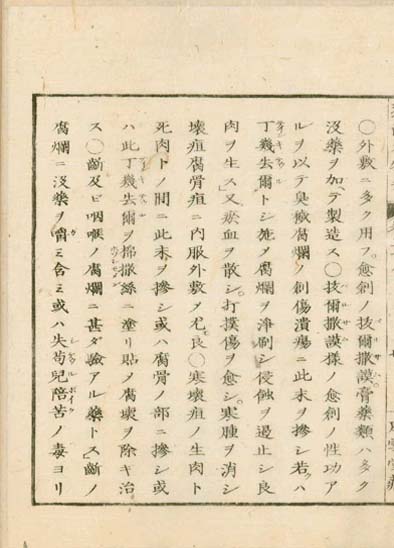 〇外敷ニ多ク用フ。愈創ノ拔爾撒謨膏藥類ハ多ク
沒藥ヲ加テ製造ス〇拔爾撒謨樣ノ愈創ノ性功ア
ルヲ以テ臭敗腐爛ノ創傷潰瘍ニ此末ヲ摻シ若クハ
丁幾去爾トシ施メ腐爛ヲ淨刷シ侵蝕ヲ遏止シ良
肉ヲ生ス」又瘀血ヲ散シ。打撲傷ヲ愈シ。寒腫ヲ消シ
壞疽腐骨疽ニ内服外敷メ尤良〇寒壞疽ノ生肉ト
死肉トノ間ニ此末ヲ摻シ或ハ腐骨ノ部ニ摻シ或
ハ此丁幾去爾ヲ撒絲ニ塗リ貼メ腐壞ヲ除キ治
ス〇齗及ビ咽喉ノ腐爛ニ甚ダ驗アル藥トス」齗ノ
腐爛ニ沒藥ヲ嚼ミ含ミ或ハ失苟兒陪苦ノ毒ヨリ